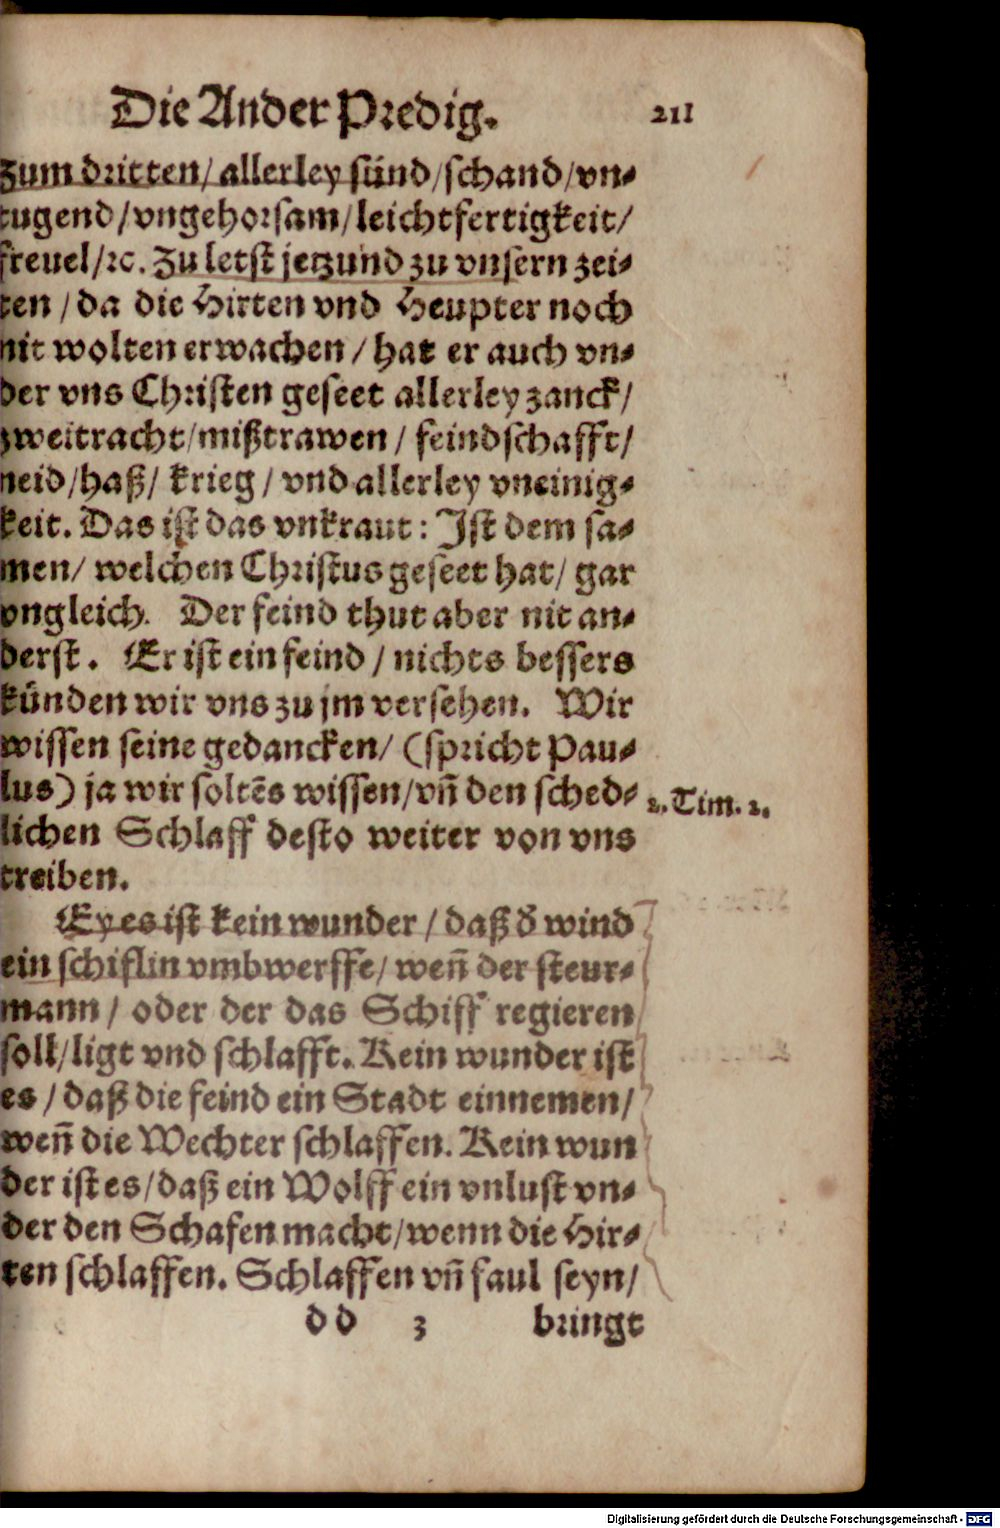 Die Ander Predig. 211
Zum dritten/ allerley sünd/schand/vn-
tugend/vngehorsam/leichtfertigkeit/
freuel/ꝛc. Zu letst jetzund zu vnsern zei-
ten/da die Hirten vnd Heupter noch
nit wolten erwachen/hat er auch vn-
der vns Christen geseet allerley zanck/
zweitracht/mißtrawen/feindschafft/
neid/haß/ krieg/vnd allerley vneinig-
keit. Das ist das vnkraut: Ist dem sa-
men/ welchen Christus geseet hat/ gar
vngleich. Der feind thut aber nit an-
derst. Er ist ein feind/nichts bessers
künden wir vns zu jm versehen. Wir
wissen seine gedancken/ (spricht Pau-
lus) ja wir soltẽs wissen/vñ den sched-
2. Tim. 2.
lichen Schlaff desto weiter von vns
treiben.
Ey es ist kein wunder/daß d̕ wind
ein schiflin vmbwerffe/weñ der steur-
mann/oder der das Schiff regieren
soll/ligt vnd schlafft. Kein wunder ist
es/daß die feind ein Stadt einnemen/
weñ die Wechter schlaffen. Kein wun
der ist es/daß ein Wolff ein vnlust vn-
der den Schafen macht/wenn die Hir-
ten schlaffen. Schlaffen vñ faul seyn/
dd 3 bringt
Digitalisierung gefördert durch die Deutsche Forschungsgemeinschaft - DFG